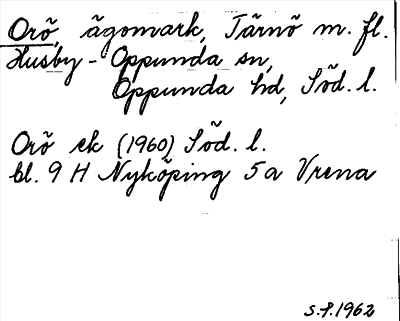 Orö, ägomark, Tärnö m. fl.
Husby-Oppunda sn,
Oppunda hd, Söd. l.
Orö ek (1960) Söd. l.
bl. 9 H Nyköping 5a Vrena
S.f.1962